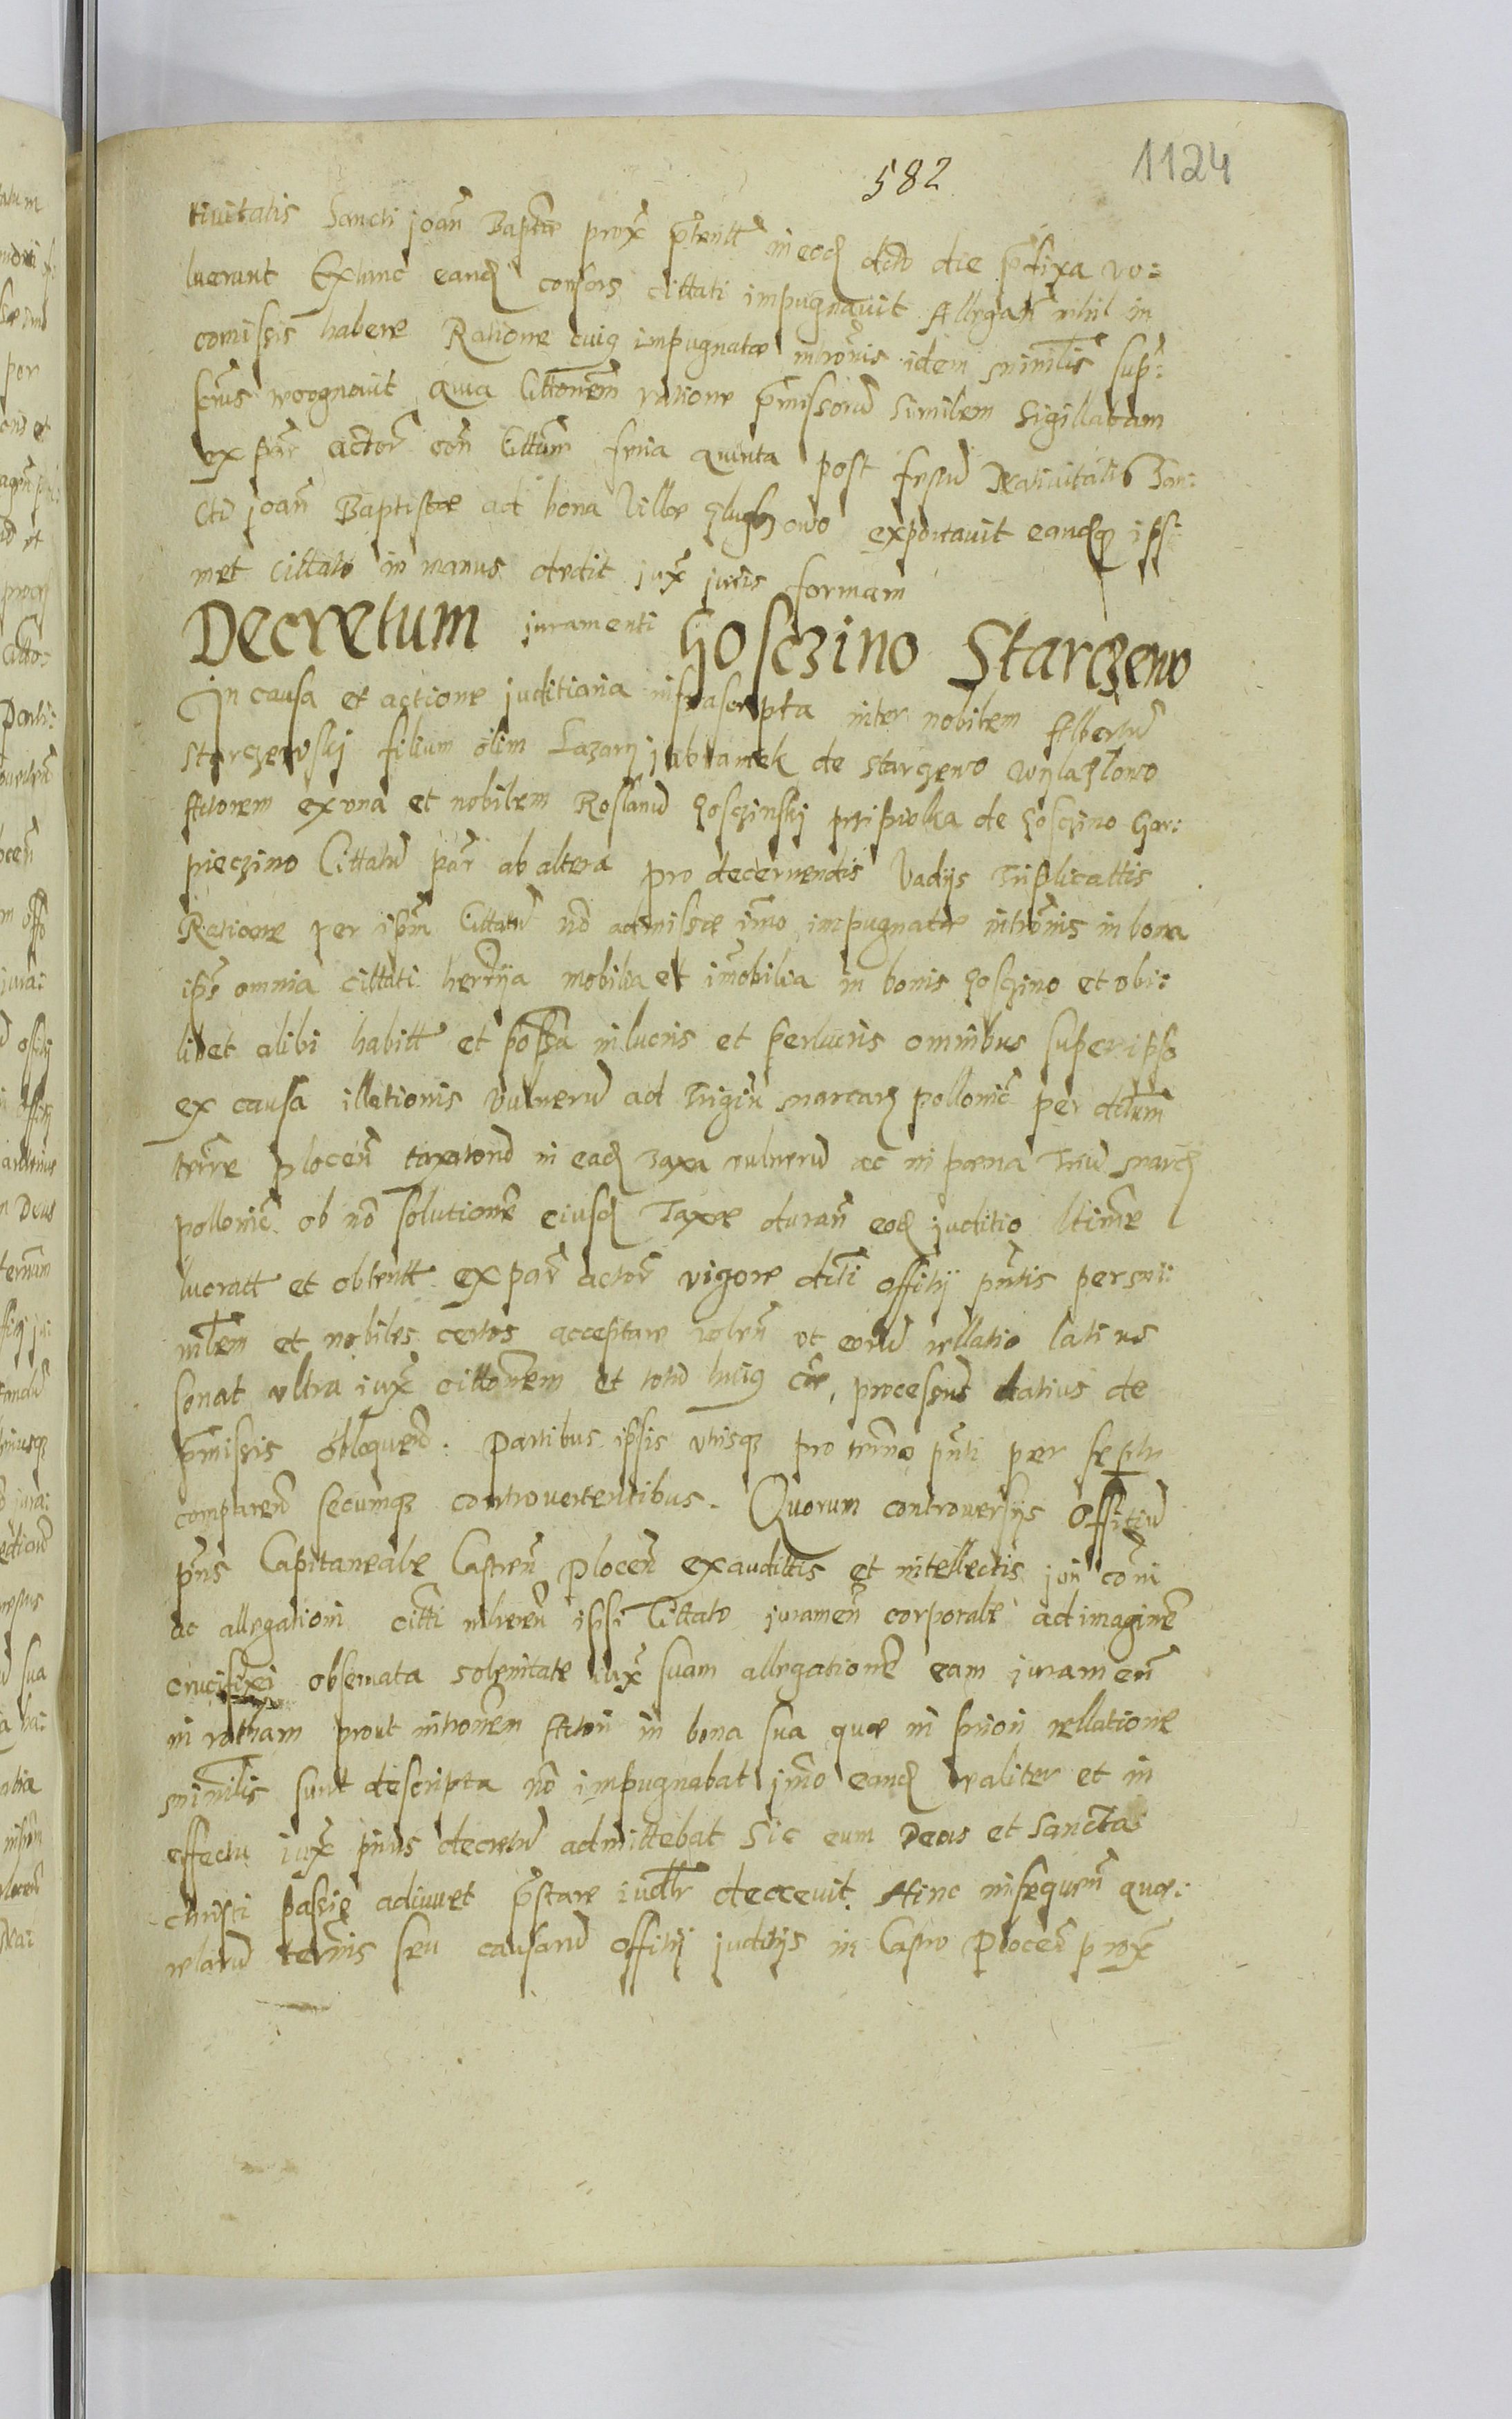 582
1124
tivitatis Sancti joan̄ Baptæ prox̄ p̄teritt in eod dicto die p̄fixa vo:
luerunt Extunc eand consors cittati impugnavit Allegan̄ nihil in
comissis habere Ratione cuiꝯ impugnatæ intro̅nis idem minilis sup̄:
scrūs recognavit quia Citto̅nem ratione p̄missorū similem sigillatam
ex par̄ actor̄ con̄ Cittūm feria quinta post festū Nativitatis San:
cti joan̄ Baptistæ ad bona Villæ exportavit eandqȝ ips:
met cittato in manus dedit jux̄ juris formam
Decretum juramenti Gosczino Starczewo
In causa et actione juditiaria infrascripta inter nobilem Albertū
Starczewskj filium olim Lazarj jablanek de Starczewo Wylazlowo
Actorem ex vna et nobilem Roslanū Gosczinskj przipiolka de Gosczino Gar:
pieczino Cittatū par̄ ab altera pro decernendis Vadijs Triplicattis
Ratione per ip̄m Cittatū nō admissæ im̄o impugnatæ intro̅nis in bona
ip̄s omnia cittati herr̄ija mobilia et im̄obilia in bonis Gosczino et vbi:
libet alibi habitt et possā in lucris et perlucris omnibus super ipso
ex causa illationis Vulnerū ad Trigin̄ marcarȝ pollonic̄ per dictum
terr̄re plocen̄ taxatorū in ead Taxa vulnerū ac in pæna Triū marcȝ
pollonic̄ ob nō solutione̅ eiusd Taxæ duran̄ eod juditio ltime̅
lucratt et obtentt ex par̄ actor̄ vigore dicti offitij pn̄tis per mi:
nl̅em et nobiles certos acceptare volen̄ vt eorū rellatio latius
sonat vltra iux̄ citto̅nem et totū huiꝯ cæ̅ processus latius de
p̄missis obloquend̄. Partibus ipsis vtrisqȝ pro termino pn̄ti per se
comparen̄ secumqȝ controvertentibus. Quorum controversijs Offitiū
pn̄s Capitaneale Castren̄ Plocen̄ exauditis et intellectis jūri co̅ni
ac allegationi citti inheren̄ ipsi Cittato juramen̄ corporale ad imagine̅
crucifixi observata solenitate iux̄ suam allegatione̅ eam juramen̄
in rotham prout intro̅nem Actori in bona sua quæ in priori rellatione
minilis sunt descripta nō impugnabat im̄o eand realiter et in
effectu iux̄ prius decretū admittebat Sic eum Deus et Sancta
christi passio adiuvet p̄stare iudl̅r decrevit. Hinc in sequen̄ quæ:
relarū termis seu causarū offitij juditijs in Castro Plocen̄ prox̄